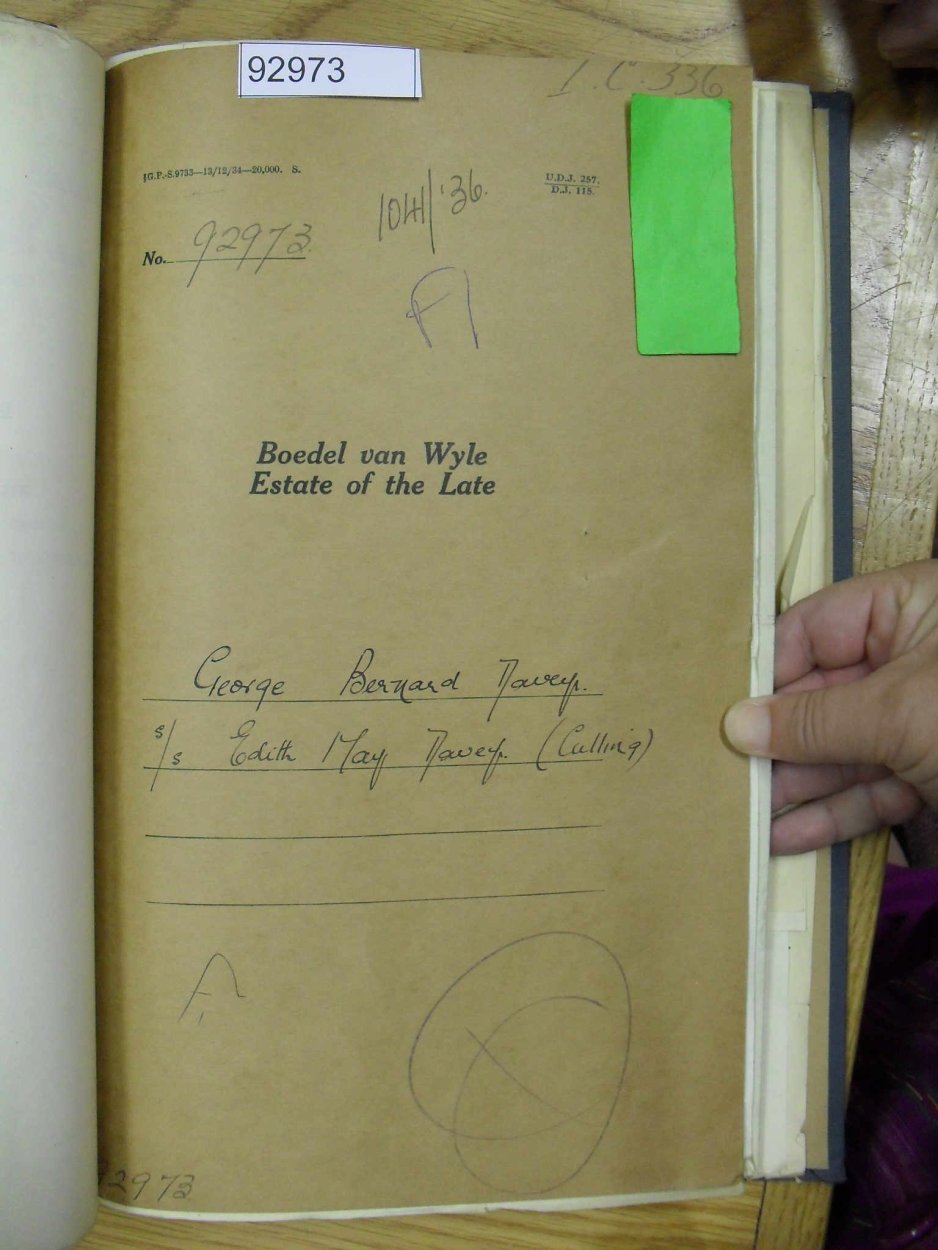 92973
I.C. 336
G.P.-S.9733—13/12/34—20,000. S.
U.D.J. 257.
D.J. 118.
No. 92973
'36.
A
Boedel van Wyle
Estate of the Late
George Bernard Davey.
s/s Edith May Davey. (Culling)
A
92973